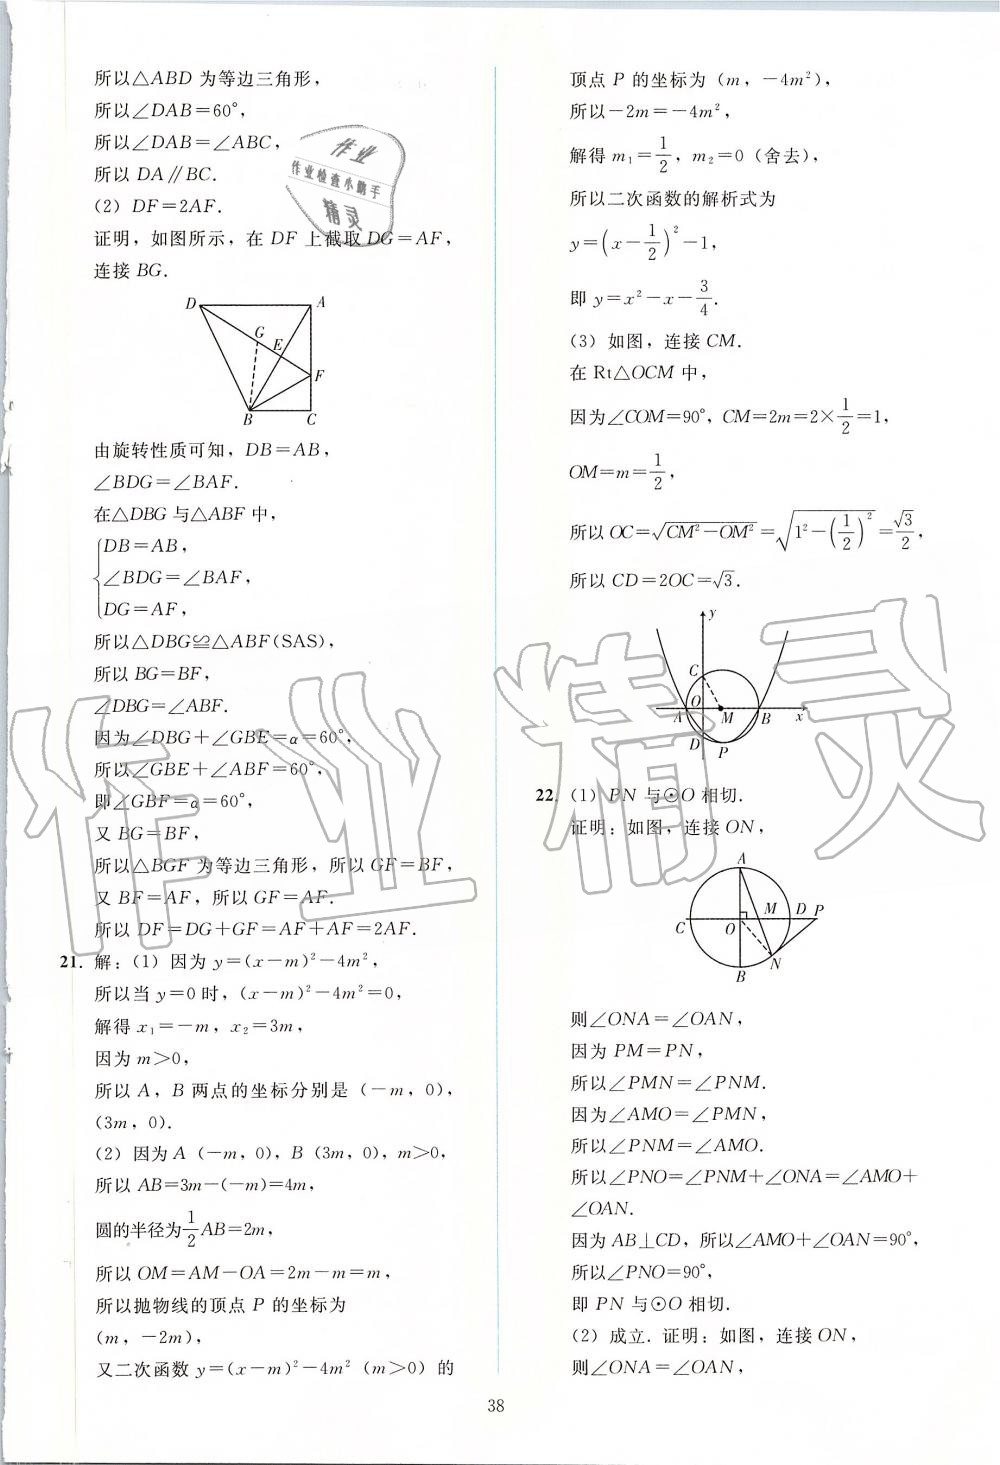 所以△ABD 为等边三角形，
所以∠DAB=60°，
所以∠DAB=∠ABC，
所以 DA∥BC.
(2) DF=2AF.
证明，如图所示，在 DF 上截取 DG=AF，
连接 BG.
D
A
G
E
F
B
C
由旋转性质可知，DB=AB，
∠BDG=∠BAF.
在△DBG 与△ABF 中，
{DB=AB，
∠BDG=∠BAF，
DG=AF，
所以△DBG≌△ABF(SAS)，
所以 BG=BF，
∠DBG=∠ABF.
因为∠DBG+∠GBE=α=60°，
所以∠GBE+∠ABF=60°，
即∠GBF=α=60°，
又 BG=BF，
所以△BGF 为等边三角形，所以 GF=BF，
又 BF=AF，所以 GF=AF.
所以 DF=DG+GF=AF+AF=2AF.
21. 解：(1) 因为 y=(x-m)²-4m²，
所以当 y=0 时，(x-m)²-4m²=0，
解得 x₁=-m，x₂=3m，
因为 m>0，
所以 A，B 两点的坐标分别是 (-m，0)，
(3m，0).
(2) 因为 A (-m，0)，B (3m，0)，m>0，
所以 AB=3m-(-m)=4m，
圆的半径为1/2AB=2m，
所以 OM=AM-OA=2m-m=m，
所以抛物线的顶点 P 的坐标为
(m，-2m)，
又二次函数 y=(x-m)²-4m² (m>0) 的
顶点 P 的坐标为 (m，-4m²)，
所以-2m=-4m²，
解得 m₁=1/2，m₂=0 (舍去)，
所以二次函数的解析式为
y=(x-1/2)²-1，
即 y=x²-x-3/4.
(3) 如图，连接 CM.
在 Rt△OCM 中，
因为∠COM=90°，CM=2m=2×1/2=1，
OM=m=1/2，
所以 OC=√(CM²-OM²)=√(1²-(1/2)²)=√3/2，
所以 CD=2OC=√3.
y
C
A
O
M
B
x
D
P
22. (1) PN 与⊙O 相切.
证明：如图，连接 ON，
A
C
O
M
D
P
N
B
则∠ONA=∠OAN，
因为 PM=PN，
所以∠PMN=∠PNM.
因为∠AMO=∠PMN，
所以∠PNM=∠AMO.
所以∠PNO=∠PNM+∠ONA=∠AMO+
∠OAN.
因为 AB⊥CD，所以∠AMO+∠OAN=90°，
所以∠PNO=90°，
即 PN 与⊙O 相切.
(2) 成立. 证明：如图，连接 ON，
则∠ONA=∠OAN，
38
作业
作业检查小助手
精灵
作业精灵